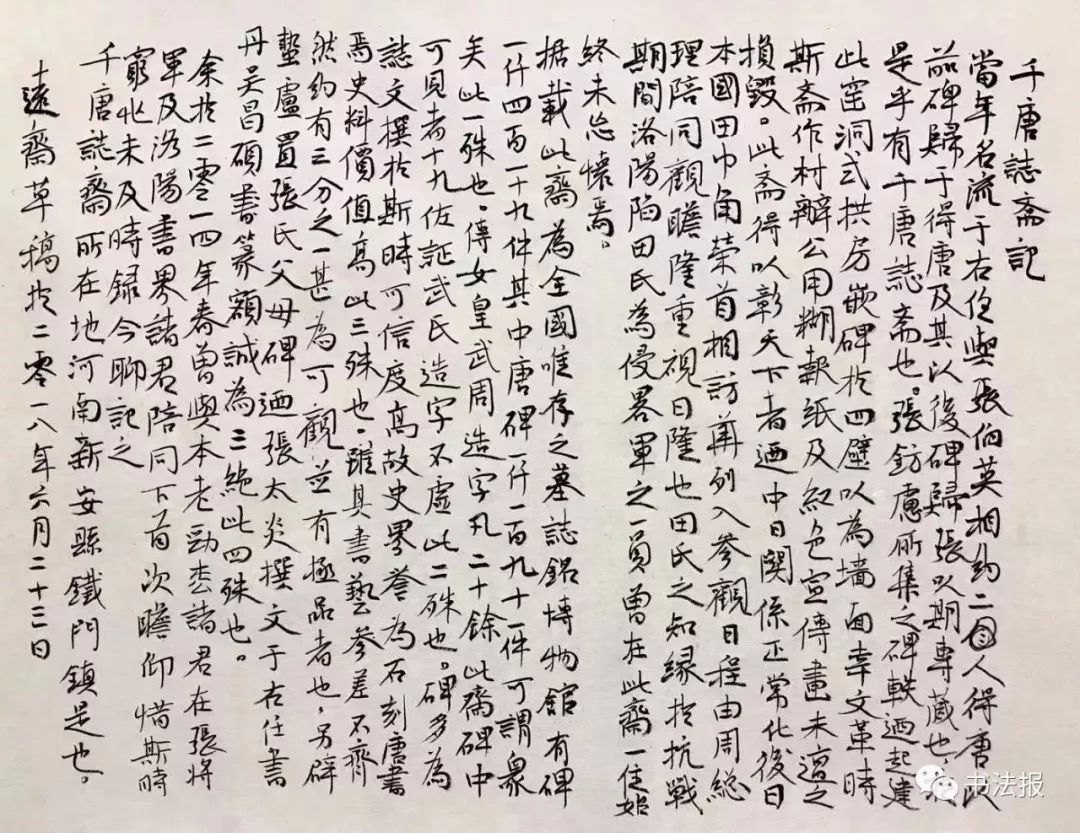 千唐誌斎記
當年名流于右任與張伯英相約二人得唐以
前碑歸于得唐及其以後碑歸張以期專藏也
是乎有千唐誌斋也。張鈁慮所集之碑軼迺起建
此窑洞式拱房嵌碑於四壁以為墙面幸文革時
斯斋作村辦公用糊報纸及紅色宣傳畫未遭之
損毀。此斋得以彰天下者迺中日関係正常化後日
本國田中角荣首相訪華列入參觀日程由周總
理陪同觀瞻隆重視日隆也田氏之知缘於抗戰
期間洛陽陷田氏為侵畧軍之一員曾在此齋一住始
终未忘懷焉。
据載此齋為全國唯存之墓誌銘博物館有碑
一仟四百一十九件其中唐碑一仟一百九十一件可謂衆
矣此一殊也。傳女皇武周造字凡二十餘此齋碑中
可見者十九佐証武氏造字不虛此二殊也。碑多為
誌文撰於斯時可信度高故史界誉為石刻唐書
焉史料價值高此三殊也。雖其書藝參差不齊
然約有三分之一甚為可觀並有極品者也，另辟
蟄廬置張氏父母碑迺張太炎撰文于右任書
丹吴昌碩書篆額誠為三絶此四殊也。
余於二零一四年春曾與本老勁松諸君在張將
軍及洛陽書界諸君陪同下首次瞻仰惜斯時
窮忙未及時録今聊記之
千唐誌齋所在地河南新安縣鐵門鎮是也。
遠齋草稿於二零一八年六月二十三日
书法报